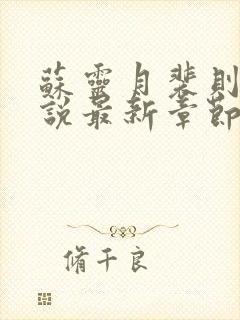 蘇靈月裴則
說最新章節
脩千良